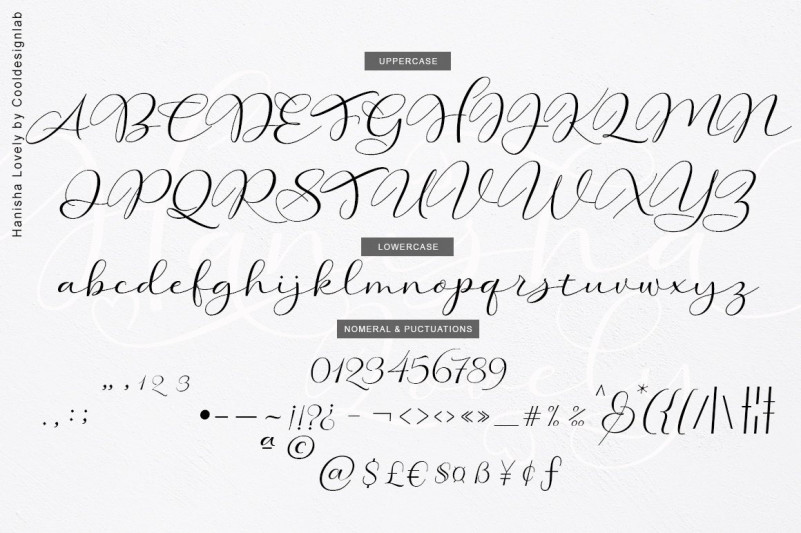 Hanisha Lovely by Cooldesignlab
UPPERCASE
ABCDEFGHIJKLMN
OPQRSTUVWXYZ
LOWERCASE
abcdefghijklmnopqrstuvwxyz
NOMERAL & PUCTUATIONS
0123456789
„ , 1 2 3
. , : ; • – — ~ ¡!?¿ - ¬ < > ‹ › « » _ # % ‰ ^ & * ( { ( / | \
ª ©
@ $ £ € § ¤ ß ¥ ¢ ƒ
Hanisha
Lovely